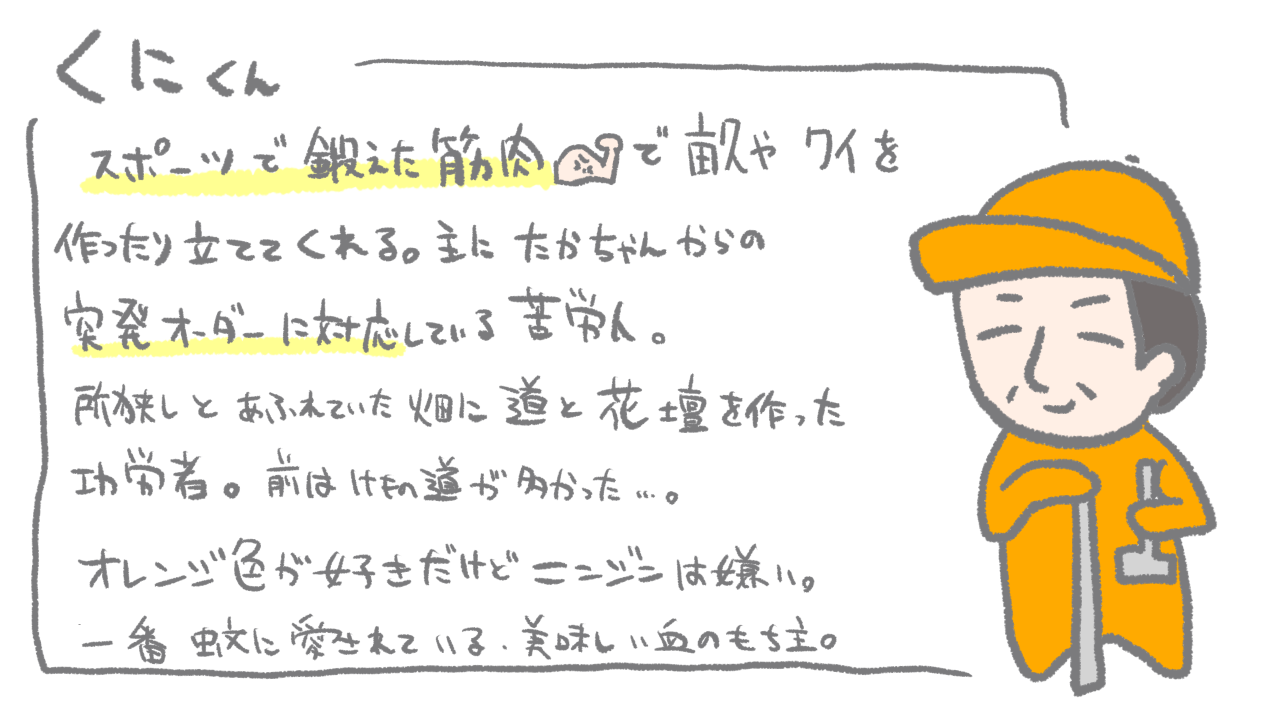 くにくん
スポーツで鍛えた筋肉で畝やクイを
作ったり立ててくれる。主にたかちゃんからの
突発オーダーに対応している苦労人。
所狭しとあふれていた畑に道と花壇を作った
功労者。前はけもの道が多かった…。
オレンジ色が好きだけどニンジンは嫌い。
一番蚊に愛されている、美味しい血のもち主。